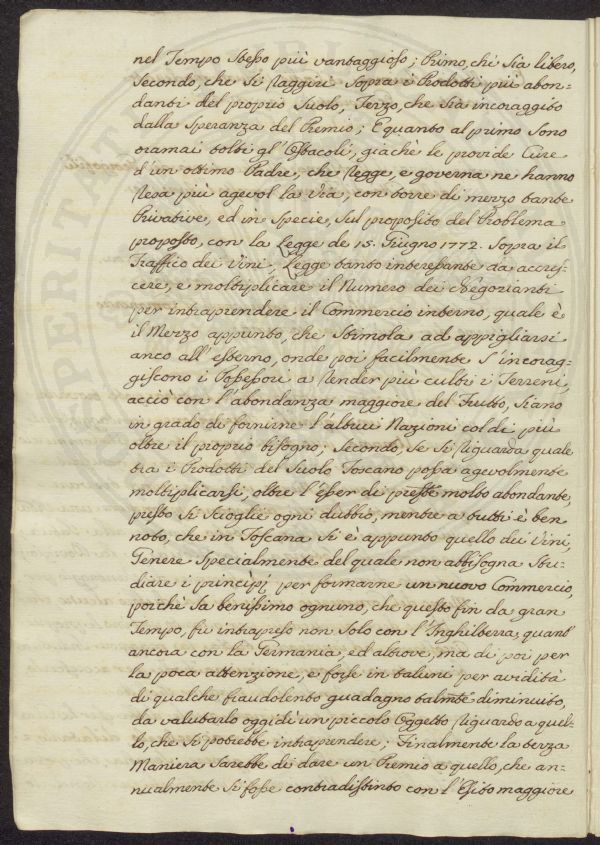 nel Tempo stesso più vantaggioso; Primo, che sia libero,
Secondo, che si raggiri sopra i Prodotti più abon=
danti del proprio suolo, Terzo, che sia incoraggito
dalla speranza del Premio; E quanto al primo sono
oramai tolti gl'Ostacoli, giachè le provide Cure
d'un ottimo Padre, che regge, e governa ne hanno
resa più agevol la via, con torre di mezzo tante
Privative, ed in specie, sul proposito del Problema
proposto, con la Legge de 15. Giugno 1772. sopra il
Traffico dei Vini, Legge tanto interessante da accres=
cere, e moltiplicare il Numero dei Negozianti
per intraprendere il Commercio interno, quale è
il Mezzo appunto, che stimola ad appigliarsi
anco all'esterno, onde poi facilmente s'incorag=
giscono i Possessori a render più culti i Terreni,
acciò con l'abondanza maggiore del Frutto, siano
in grado di fornirne l'altrui Nazioni col di più
oltre il proprio bisogno; Secondo, se si riguarda quale
tra i Prodotti del suolo Toscano possa agevolmente
moltiplicarsi, oltre l'esser di pres̃te molto abondante,
presto si scioglie ogni dubbio, mentre a tutti è ben
noto, che in Toscana si è appunto quello dei Vini,
Genere specialmente del quale non abbisogna stu=
diare i principj per formarne un nuovo Commercio,
poichè sa benissimo ognuno, che questo fin da gran
Tempo, fù intrapreso non solo con l'Inghilterra, quant'
ancora con la Germania, ed altrove, ma di poi per
la poca attenzione, e forse in taluni per avidità
di qualche fraudolento guadagno talmẽte diminuito,
da valutarlo oggidì un piccolo Oggetto riguardo a quel=
lo, che si potrebbe intraprendere; Finalmente la terza
Maniera sarebbe di dare un Premio a quello, che an=
nualmente si fosse contradistinto con l'Esito maggiore